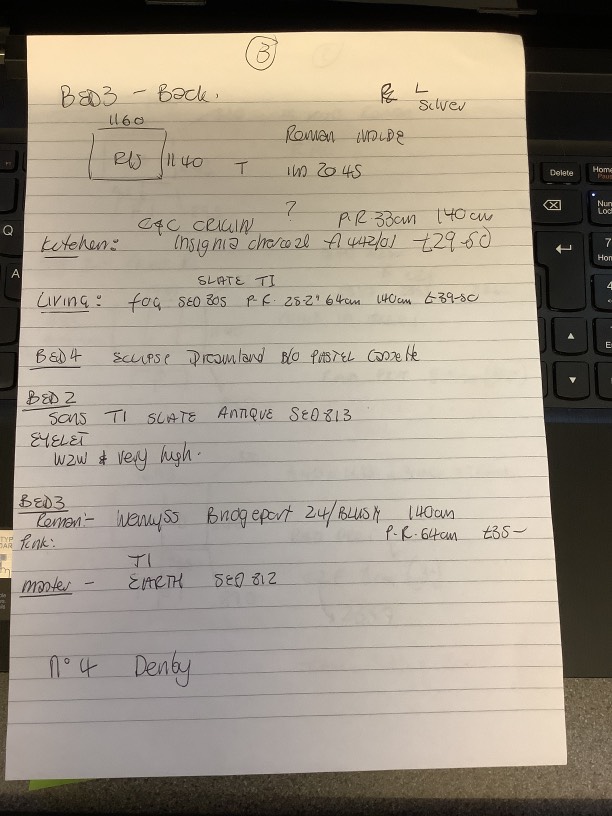 3
BED3 - Back. R L
Silver
1160
R/S 1140 T Roman INSIDE
IND 2045
?
C&C ORIGIN P.R. 33cm 140cm
Kitchen: Insignia charcoal A442/01 £29-50
SLATE TI
Living: fog SEO 305 P.R. 25-2" 64cm 140cm £39-50
BED4 Eclipse Dreamland B/O PASTEL Cassette
BED2
SONS TI SLATE ANTIQUE SEO 813
EYELET
W2W & very high.
BED3
Roman:- Wemyss Bridgeport 24/BLUSH 140cm
Pink: P.R. 64cm £35-
TI
master - EARTH SEO 812
No 4 Denby
Delete
Home